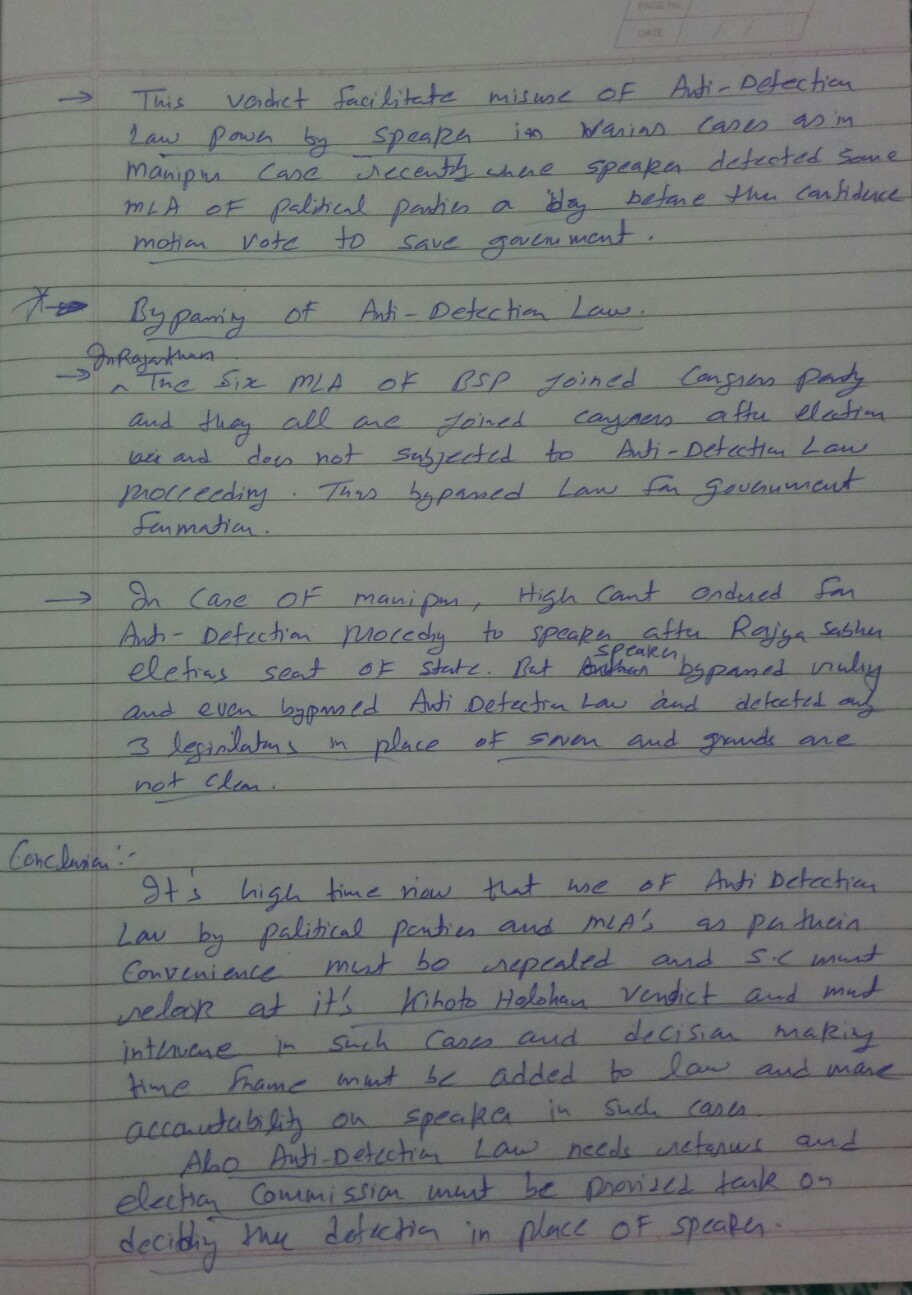 PAGE No.
DATE
→ This verdict facilitate misuse OF Anti-Detection
Law power by speaker in Various cases as in
Manipur Case recently where speaker detected some
MLA OF political parties a day before the confidence
motion vote to save government.
Bypassing OF Anti-Detection Law.
In Rajasthan
→ The Six MLA OF BSP joined Congress Party
and they all are joined congress after election
and does not subjected to Anti-Detection Law
proceeding. Thus bypassed Law for government
formation.
→ In Case OF manipur, High Court ordered for
Anti-Detection procedng to speaker after Rajya Sabha
speaker
eletions seat OF state. But bypassed
and even bypassed Anti Detection Law and detected only
3 legislators in place of seven and grounds are
not clear.
Conclusion :-
It's high time now that use OF Anti Detection
Law by political parties and MLA's as per their
Convenience must be repealed and S.C must
relook at it's Kihoto Holohan Verdict and must
intervene in such Cases and decision making
time frame must be added to law and more
accountability on speaker in such cases.
Also Anti-Detection Law needs reforms and
election Commission must be provided task on
deciding the detection in place OF speaker.